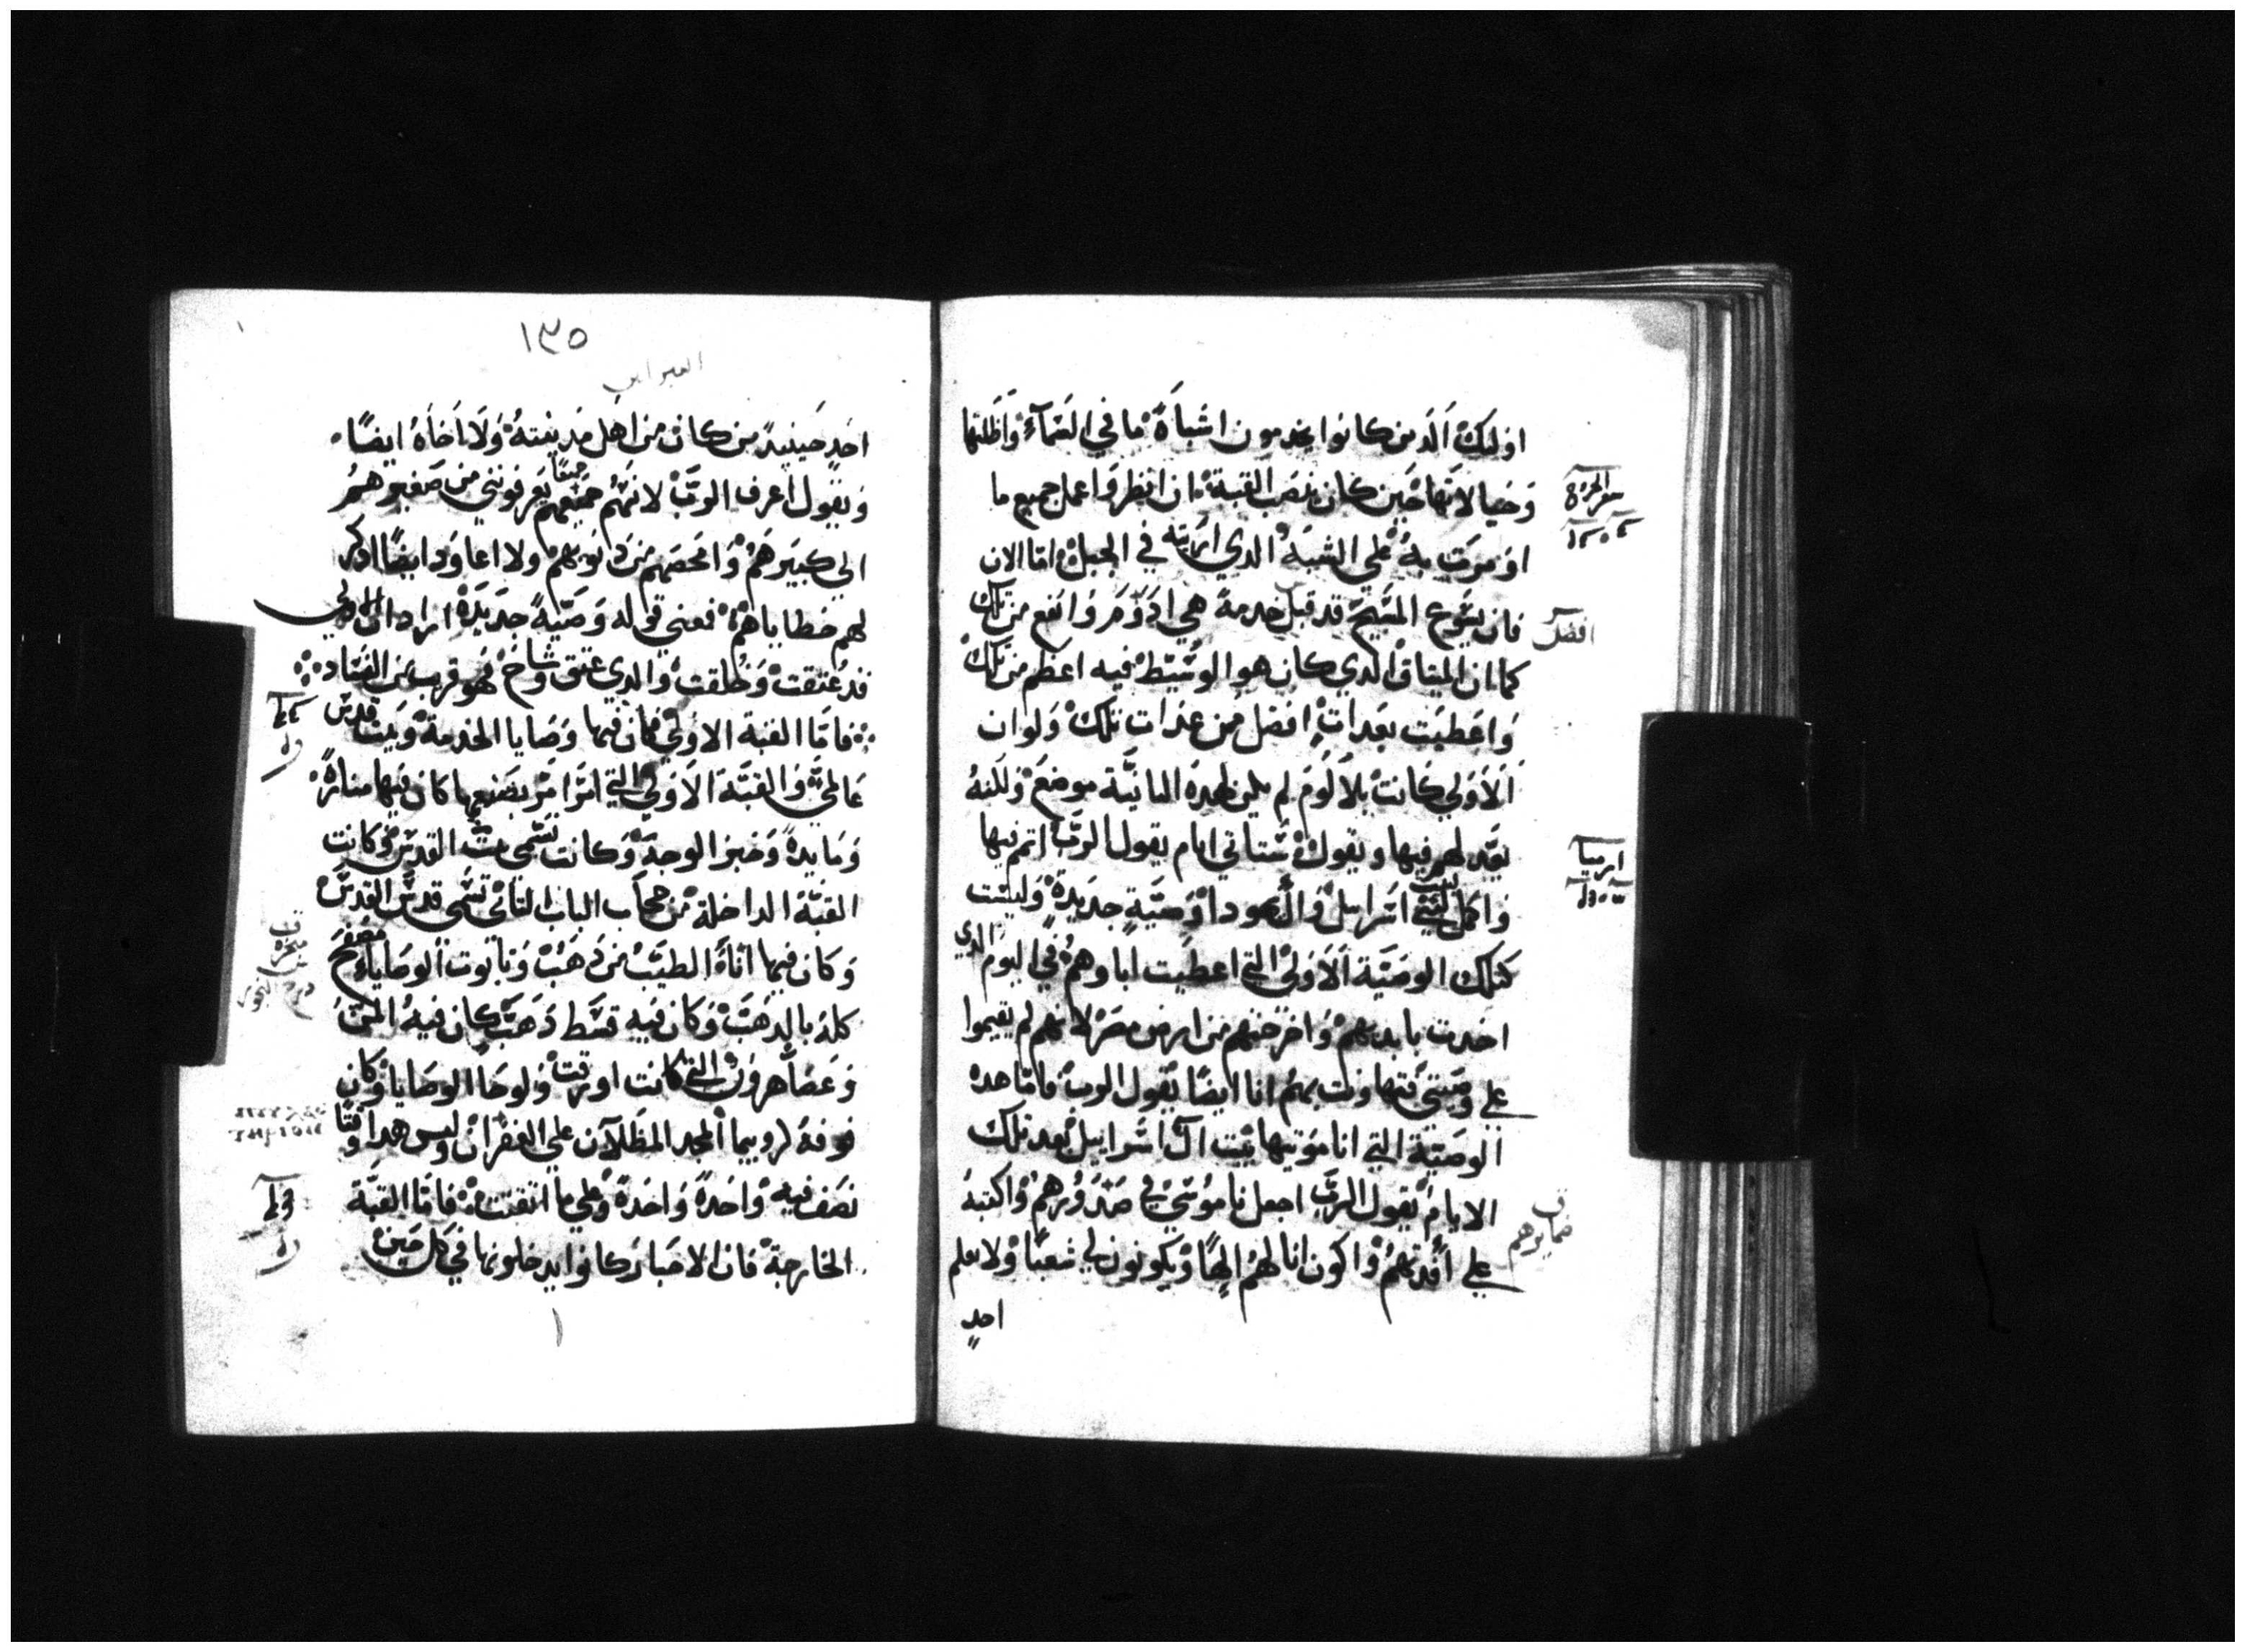 اوليك الدين كانوا يخدمون اشباه ما في السماء واظلتها
وخيالاتها حين كان ينصب القبة ان انظر واعمل جميع ما
اومرت به على الشبه الدي اريته في الجبل اما الان
فان يسوع المسيح قد قبل خدمة هي ادوم وانفع من تلك
كما ان الميتاق الدي كان هو الوسيط فيه اعظم من تلك
واعطيت بعدات افضل من عدات تلك ولو ان
الاولى كانت بلا لوم لم يكن لهده التانية موضع ولكنه
يعد لهم فيها ويقول ستاتي ايام يقول الرب اتم فيها
واكمل لبيت اسرايل وال يهودا وصية جديدة وليست
كتلك الوصية الاولى التي اعطيت اباوهم في اليوم الدي
اخدت بايديهم واخرجتهم من ارض مصر لانهم لم يقيموا
على وصيتي فتهاونت بهم انا ايضا يقول الرب فاما هده
الوصية التي انا موتيها بيت ال اسراييل بعد تلك
الايام يقول الرب اجعل ناموسي في صدورهم واكتبه
على افدتهم واكون انا لهم الها ويكونون لي شعبا ولا يعلم
احد
سفر الخروج
افضل
ارميا
ضمايرهم
١٣٥
العبرانيين
احد حينيد من كان من اهل مدينته ولا اخاه ايضا
ويقول اعرف الرب لانهم جميعهم يعرفونني من صغيرهم
الى كبيرهم وامحصهم من دنوبهم ولا اعاود ايضا ادكر
لهم خطاياهم فمعنى قوله وصية جديدة اراد ان الاولى
قد عتقت وخلقت والدي عتق وشاخ فهو قريب من الفساد
فاما القبة الاولى فكان فيها وصايا الخدمة وبيت قدس
عالمي والقبة الاولى التي امر بصنعها كان فيها منارة
ومايدة وخبز الوجه وكانت تسمى بيت القدس وكانت
القبة الداخلة من حجاب الباب التاني تسمى قدس القدس
وكان فيها اناء الطيب من دهب وتابوت الوصايا مصفح
كله بالدهب وكان فيه قسط دهب كان فيه المن
وعصا هرون التي كانت اورقت ولوحا الوصايا وكان
فوقه كروبيما المجد المظللان على الغفران وليس هدا وقتا
نصف فيه واحدة واحدة على ما اتقنت فاما القبة
الخارجة فان الاحبار كانوا يدخلونها في كل حين